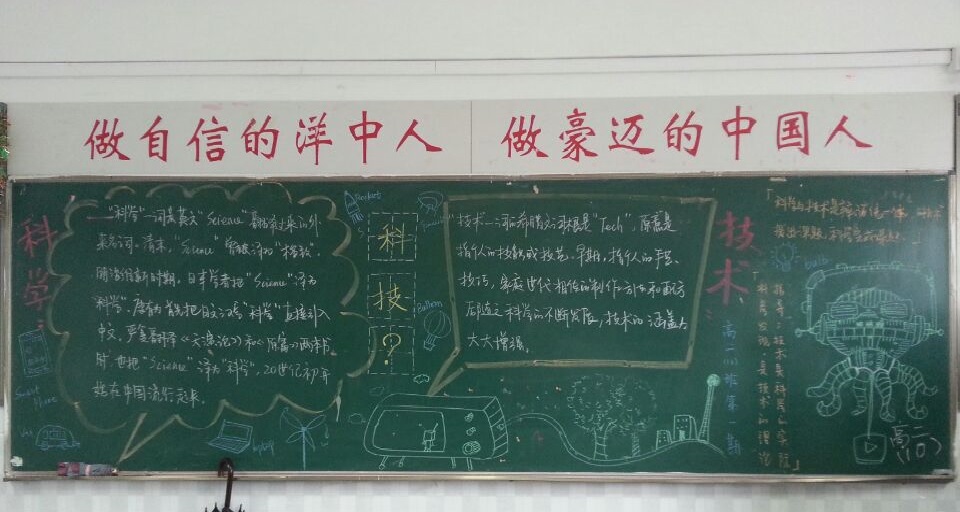 做自信的洋中人 做豪迈的中国人
科学：
"科学"一词来英文"Science"翻译过来的外
来名词。清末，"Science"曾被译为"格致"。
明治维新时期，日本学者把"Science"译为
"科学"，康有为首先把日文汉字"科学"直接引入
中文。严复翻译《天演论》和《原富》两本书
时，也把"Science"译为"科学"，20世纪初开
始在中国流行起来。
Smart
Phone
Van
laptop
Rocket
科
技
?
Balloon
技术一词的希腊文词根是"Tech"，原意是
指个人的技能或技艺。早期，指个人的手艺、
技巧，家庭世代相传的制作方法和配方
后随之科学的不断发展，技术的涵盖力
大大增强。
技术：
高二
第一期
bulb
科学发现是技术的
高二
(10)